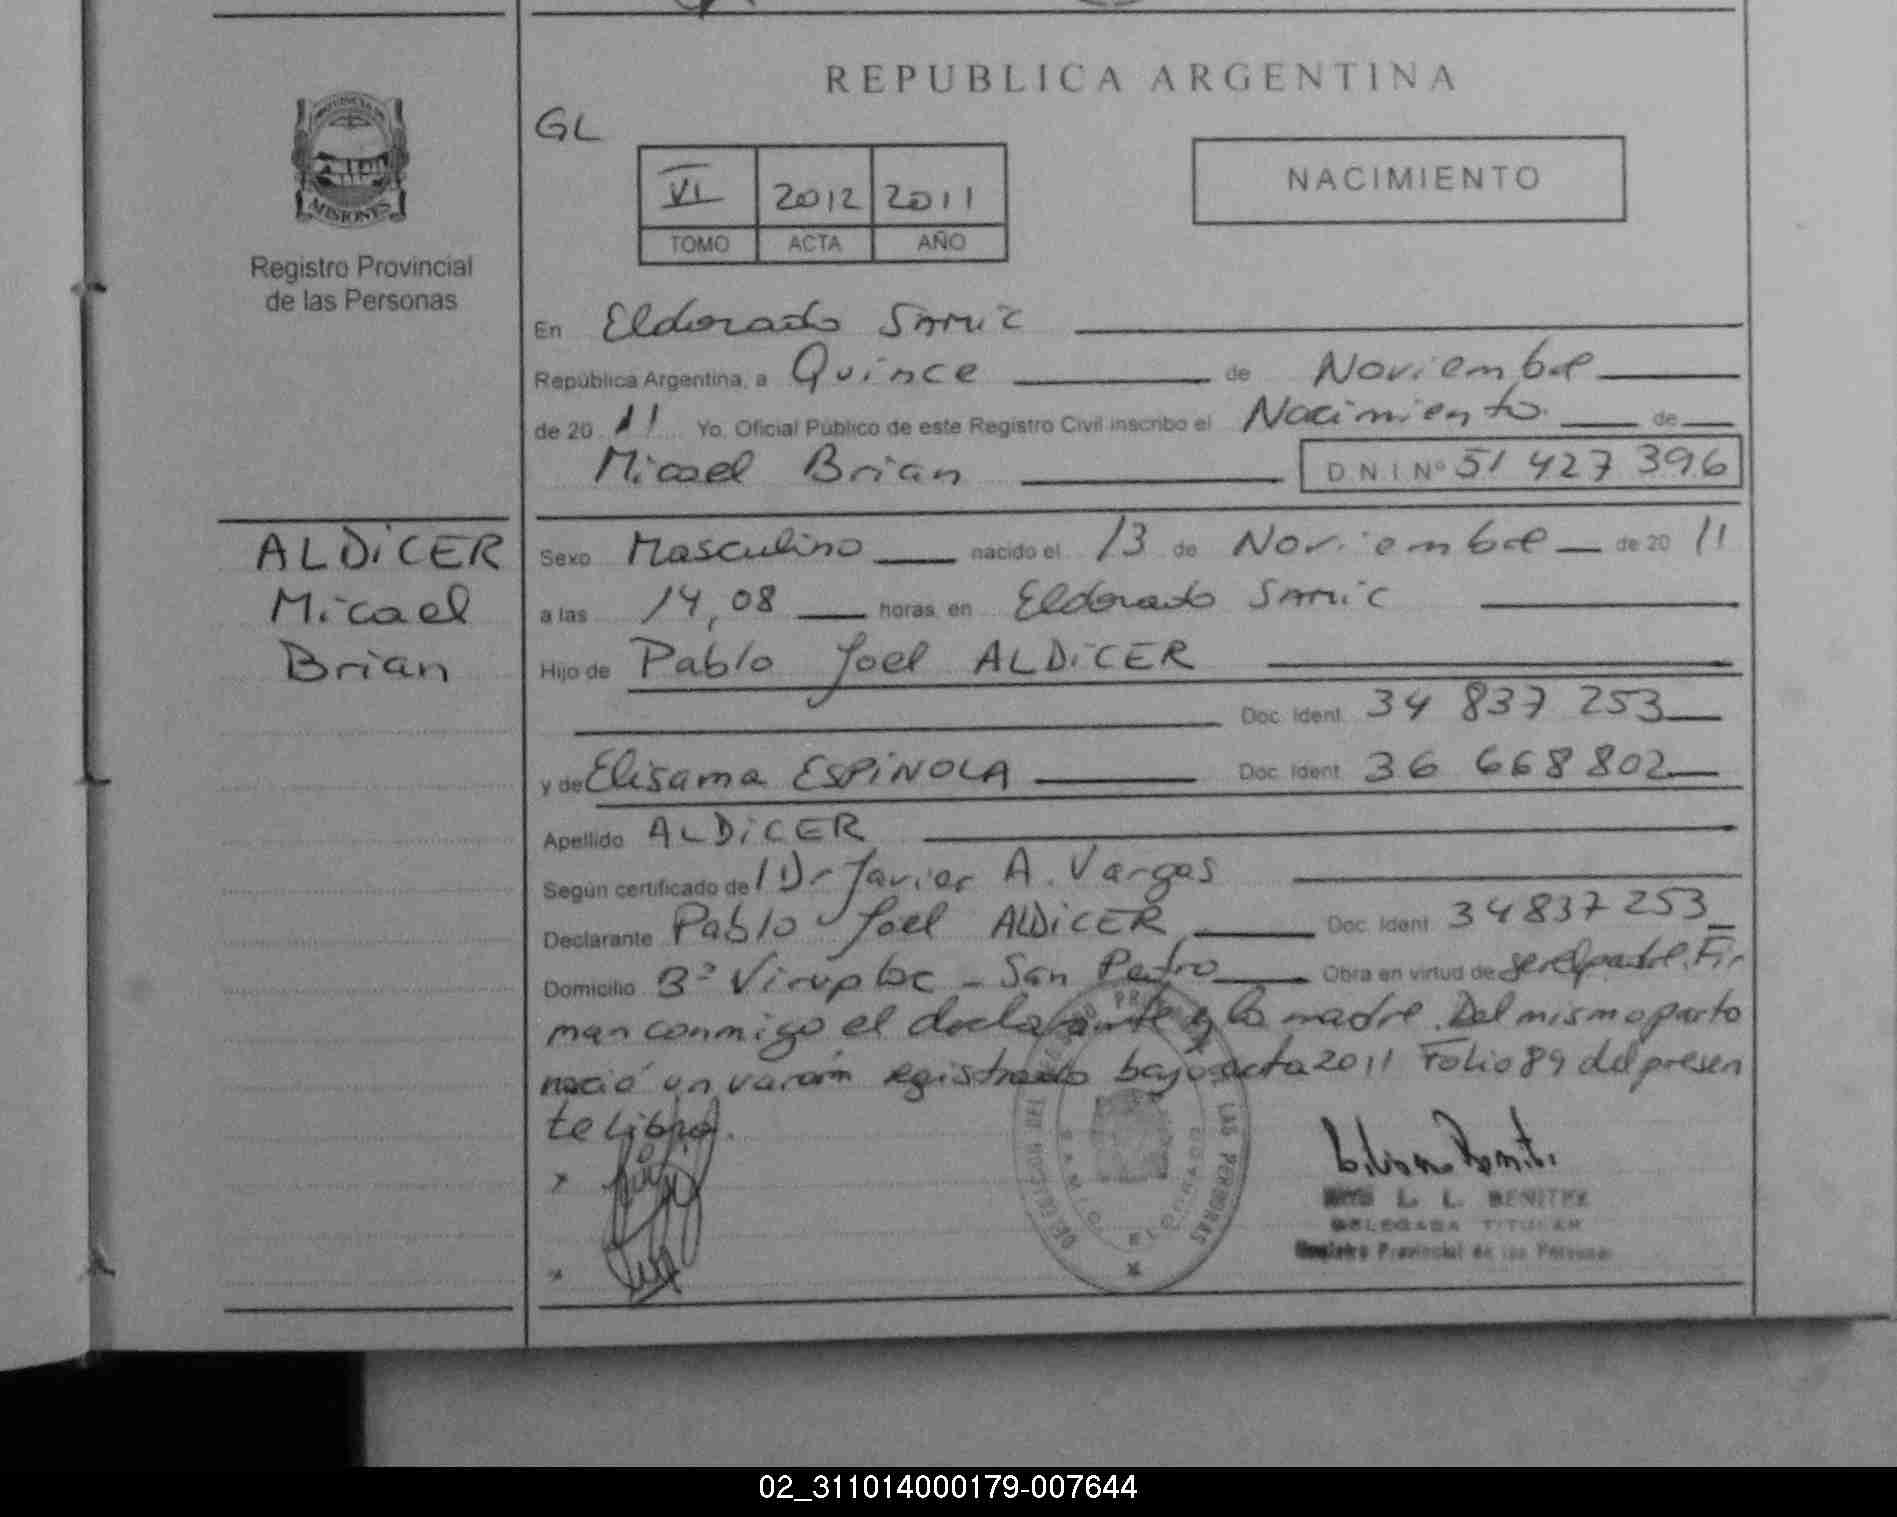 REPUBLICA ARGENTINA
GL
VI 2012 2011
TOMO ACTA AÑO
NACIMIENTO
PROVINCIA DE
MISIONES
Registro Provincial
de las Personas
En Eldorado Samic
República Argentina, a Quince de Noviembre
de 20 11 Yo, Oficial Público de este Registro Civil inscribo el Nacimiento de
Micael Brian D.N.I Nº 51 427 396
ALDiCER
Micael
Brian
Sexo Masculino nacido el 13 de Noviembre de 20 11
a las 14,08 horas, en Eldorado Samic
Hijo de Pablo Joel ALDiCER
Doc. Ident. 34 837 253
y de Elisama ESPiNOLA Doc. Ident. 36 668 802
Apellido ALDiCER
Según certificado de Dr Javier A. Vargas
Declarante Pablo Joel ALDiCER Doc. Ident. 34837253
Domicilio San Pedro Obra en virtud de ser el padre. Fir
man conmigo el declarante y la madre. Del mismo parto
nació un varón registrado bajo acta 2011 Folio 89 del presen
te Libro.
DELEGACION DEL REGISTRO PROVINCIAL DE LAS PERSONAS
SAMIC ELDORADO
L. L. BENITEZ
DELEGADA TITULAR
Registro Provincial de las Personas
02_311014000179-007644